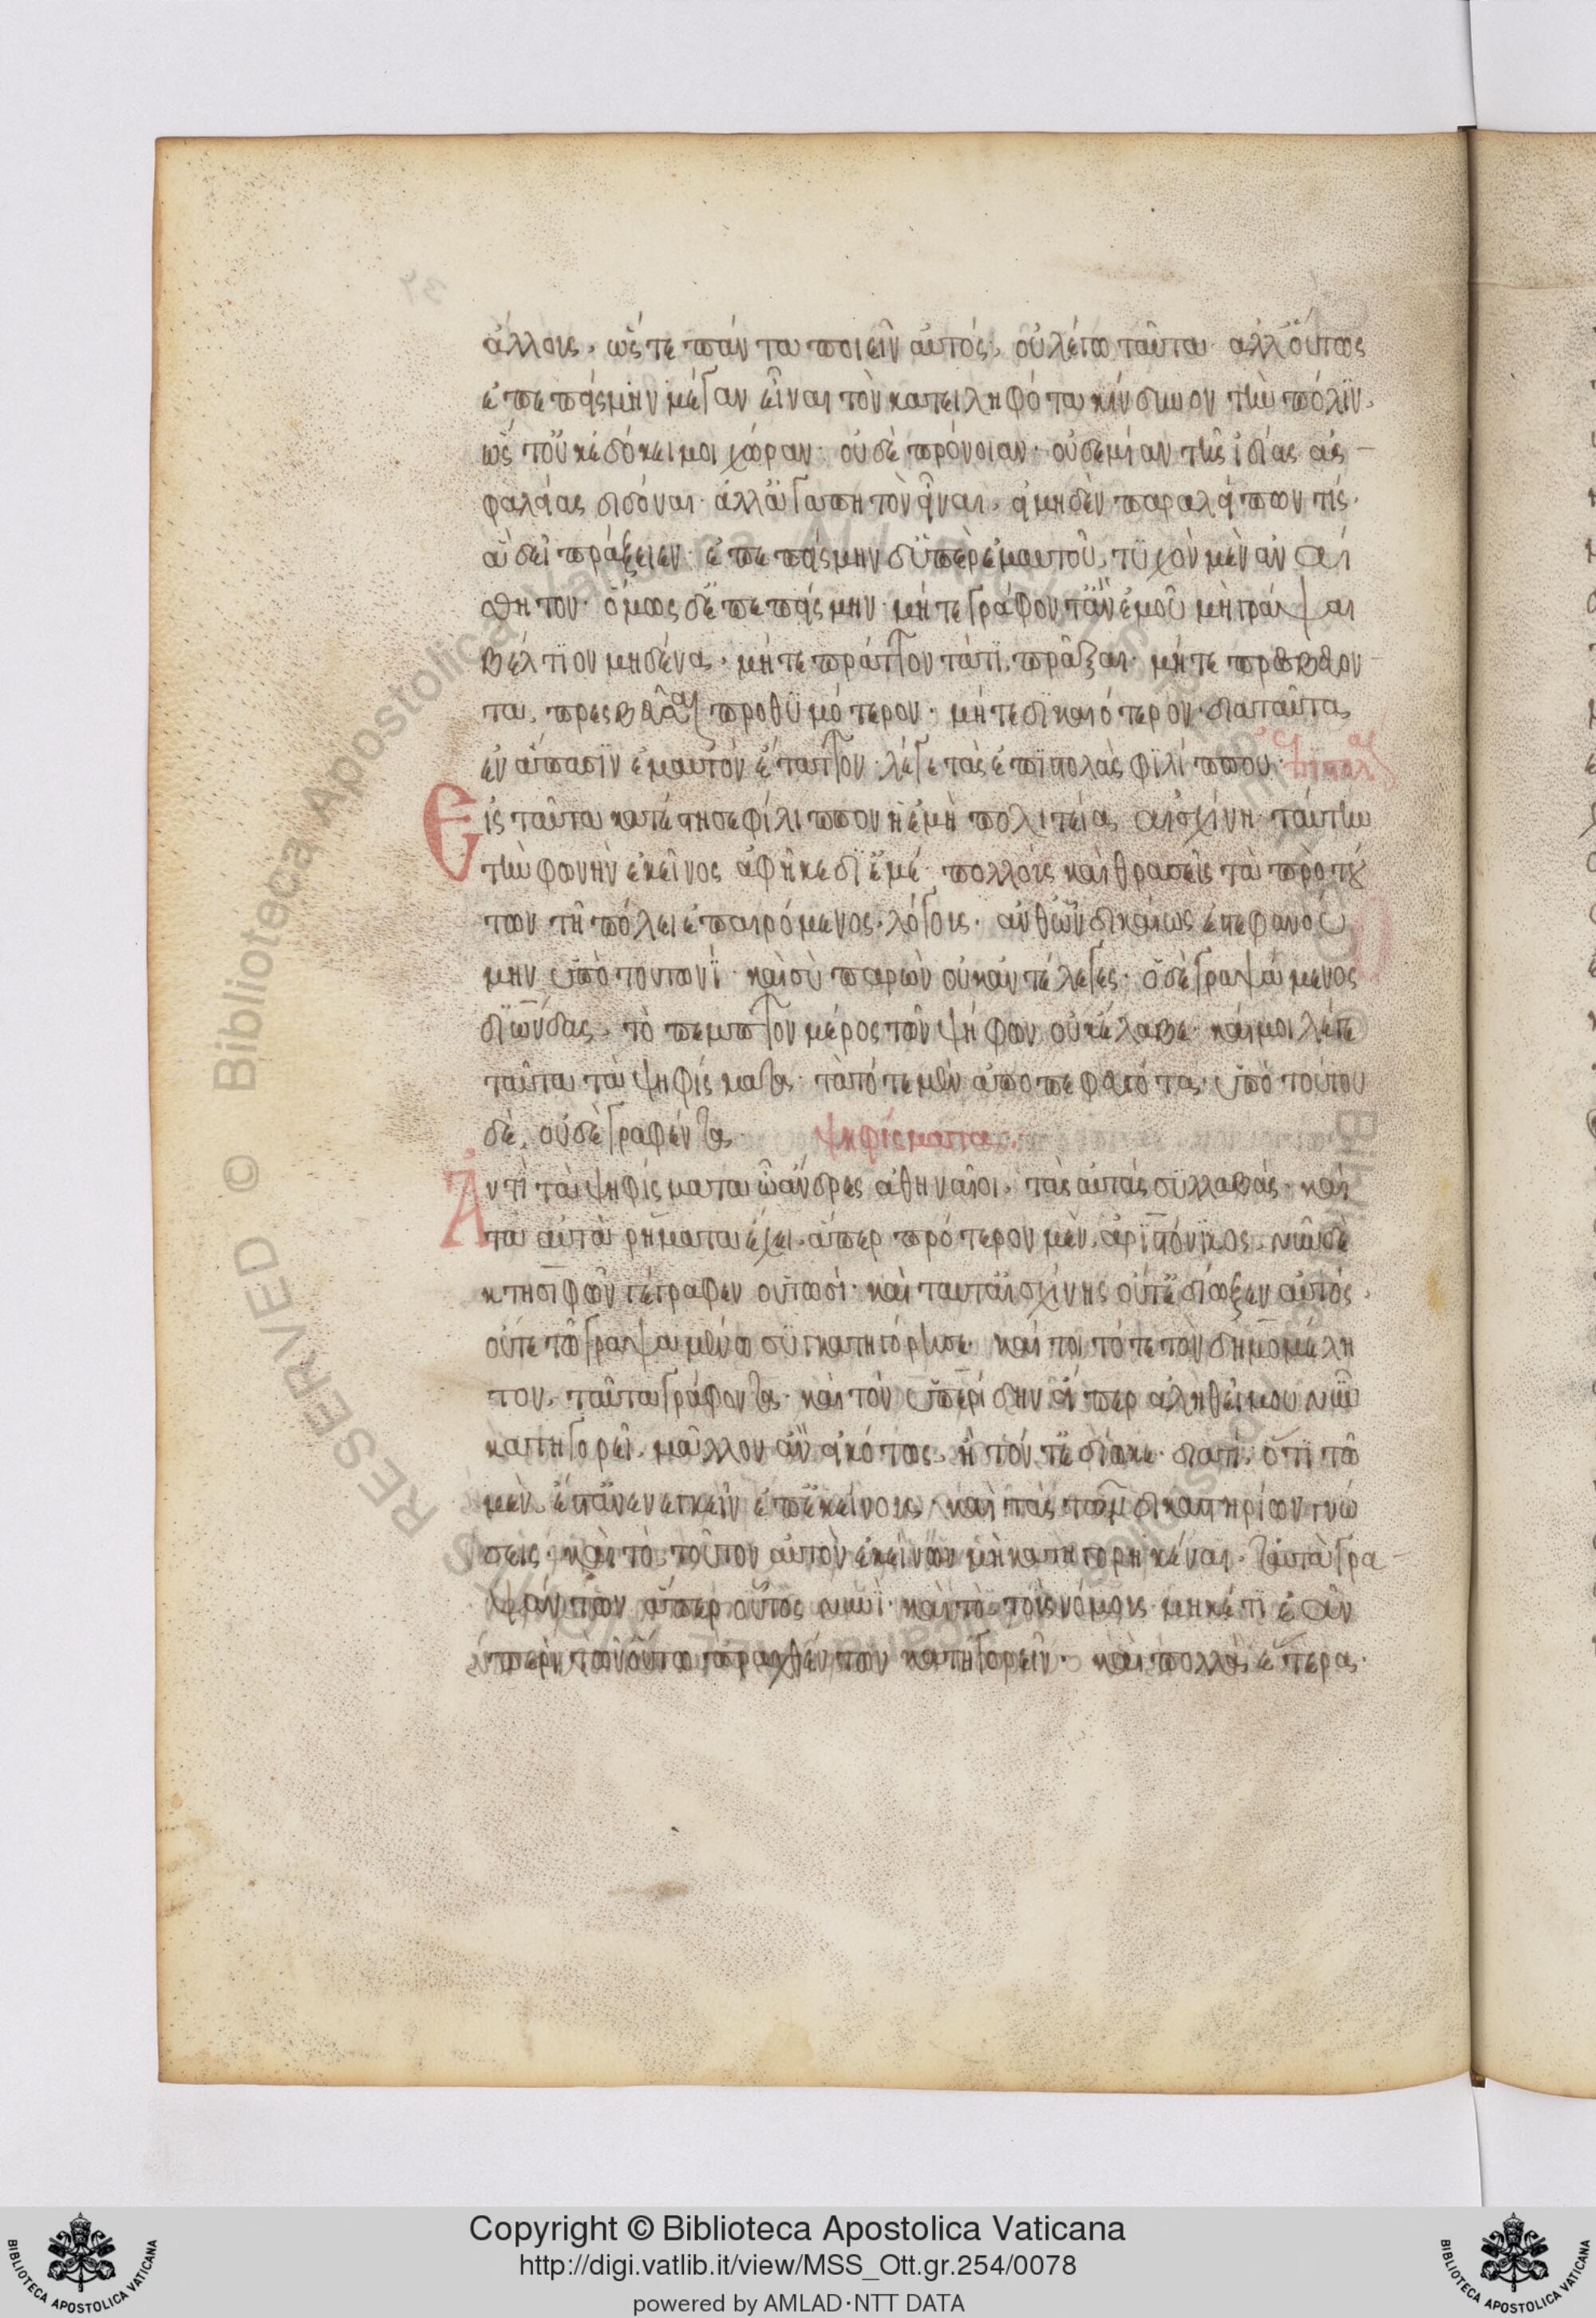 ἄλλοις, ὥστε πάντα ποιεῖν αὐτός· οὐ λέγω ταῦτα ἀλλ' οὕτως
ἐπεπείσμην μέγαν εἶναι τὸν κατειληφότα κίνδυνον τὴν πόλιν,
ὥστ' οὐκ ἐδόκει μοι χώραν· οὐδὲ πρόνοιαν· οὐδεμίαν τῆς ἰδίας ἀσ-
φαλείας διδόναι· ἀλλ' ἀγαπητὸν εἶναι, εἰ μηδὲν παραλείπων τίς·
ἃ δεῖ πράξειεν· ἐπεπείσμην δ' ὑπὲρ ἐμαυτοῦ, τυχὸν μὲν ἀναι
σθητον· ὅμως δ' ἐπεπείσμην· μήτε γράφοντ' ἂν ἐμοῦ μὴ γράψαι
βέλτιον μηδένα· μήτε πράττοντά τι, πρᾶξαι· μήτε πρεσβεύον
τα, πρεσβεῦσαι προθυμότερον· μήτε δικαιότερον· διὰ ταῦτα
ἐν ἅπασιν ἐμαυτὸν ἔταττον· λέγε τὰς ἐπιστολὰς φιλίππου·
Εἰς ταῦτα κατέστησε φίλιππον ἡ ἐμὴ πολιτεία αἰσχίνη· ταύτην
τὴν φωνὴν ἐκεῖνος ἀφῆκε δι' ἐμέ· πολλοὺς καὶ θρασεῖς τὰ πρὸ τού
των τῇ πόλει ἐπαιρόμενος λόγους· ἀνθ' ὧν δικαίως ἐστεφανού
μην ὑπὸ τουτωνί· καὶ σὺ παρὼν οὐκ ἀντέλεγες· ὁ δὲ γραψάμενος
διώνδας, τὸ πεμπτον μέρος τῶν ψήφων οὐκ ἔλαβε· καί μοι λέγε
ταῦτα τὰ ψηφίσματα· τὰ τότε μὲν ἀποπεφευγότα· ὑπὸ τούτου
δὲ, οὐδὲ γραφέντα· ψηφίσματα.
Αντὶ τὰ ψηφίσματα ὦ ἄνδρες ἀθηναῖοι, τὰς αὐτὰς συλλαβάς· καὶ
τὰ αὐτὰ ρήματα ἔχει, ἅπερ πρότερον μὲν, ἀριστόνικος, νῦν δὲ
κτησιφῶν γέγραφεν οὑτοσί· καὶ ταῦτ' αἰσχίνης οὔτ' ἐδίωξεν αὐτός·
οὔτε τῷ γραψαμένῳ συγκατηγόρησε· καίτοι τότε τὸν δημομέλη
τον, ταῦτα γράφοντα· καὶ τὸν ὑπερίδην εἴπερ ἀληθῆ μου νῦν
κατηγορεῖ, μᾶλλον ἂν εἰκότως, ἢ τόνδ' ἐδίωκε· διατί, ὅτι τῷ
μὲν ἔστ' ἀνενεγκεῖν ἐπ' ἐκείνους, καὶ τὰς τῶν δικαστηρίων γνώ
σεις· καὶ τὸ τοῦτον αὐτὸν ἐκείνων μὴ κατηγορηκέναι· ταὐτὰ γρα-
ψάντων ἅπερ οὗτος νυνί· καὶ τὸ τοὺς νόμους μηκέτι ἐᾶν
περὶ τῶν οὕτω πραχθέντων κατηγορεῖν· καὶ πολλὰ ἕτερα·
Copyright © Biblioteca Apostolica Vaticana
http://digi.vatlib.it/view/MSS_Ott.gr.254/0078
powered by AMLAD·NTT DATA